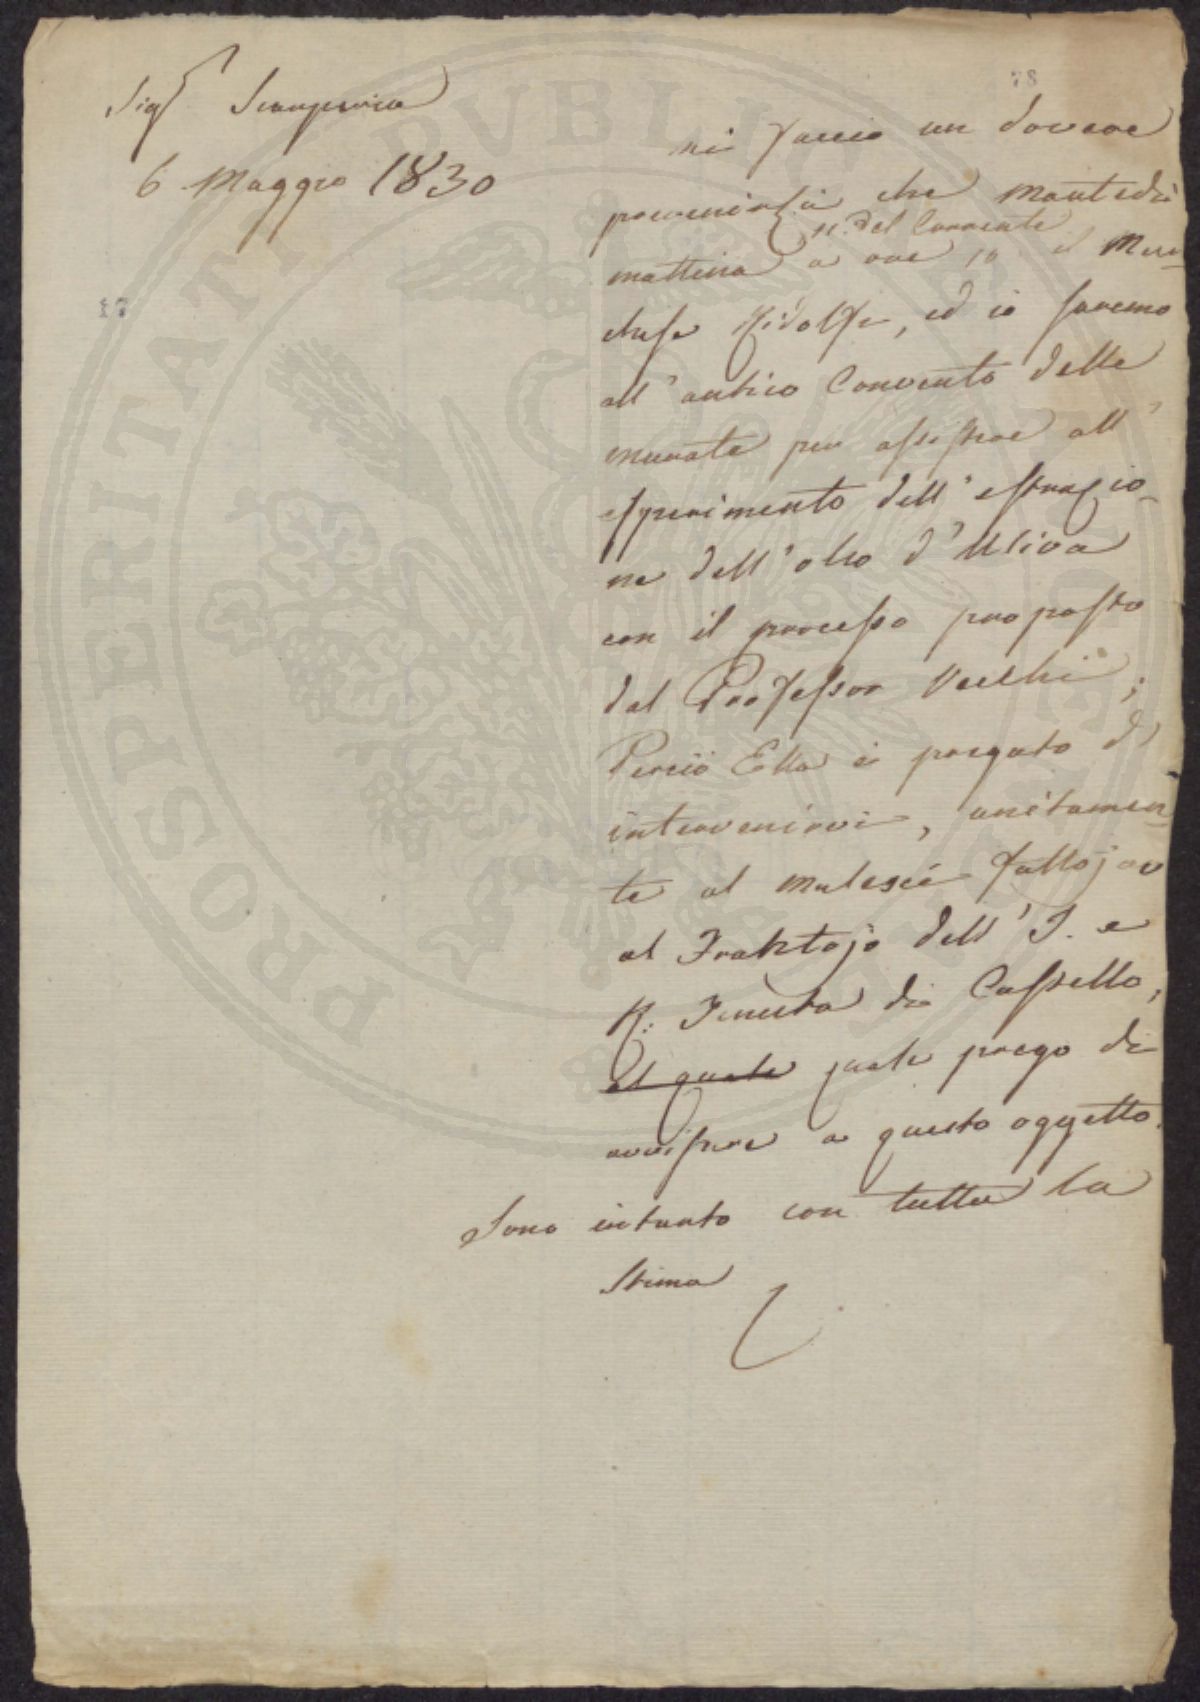 78
Sig.r Scarperia
6 Maggio 1830
17
mi faccio un dovere
prevenirla che Martedì
11. del Corrente
mattina a ore 10 il Mar-
chese Ridolfi, ed io saremo
all'antico Convento delle
murate per assistere all'
esperimento dell'estrazio-
ne dell'olio d'Uliva
con il processo proposto
dal Professor Vecchi;
Perciò Ella è pregato di
intervenirvi, unitamen-
te al fattojano
al Frantojo dell'I. e
R. Tenuta di Castello,
al quale quale prego di
avvisare a questo oggetto.
Sono intanto con tutta la
Stima
PROSPERITATI PUBLICAE